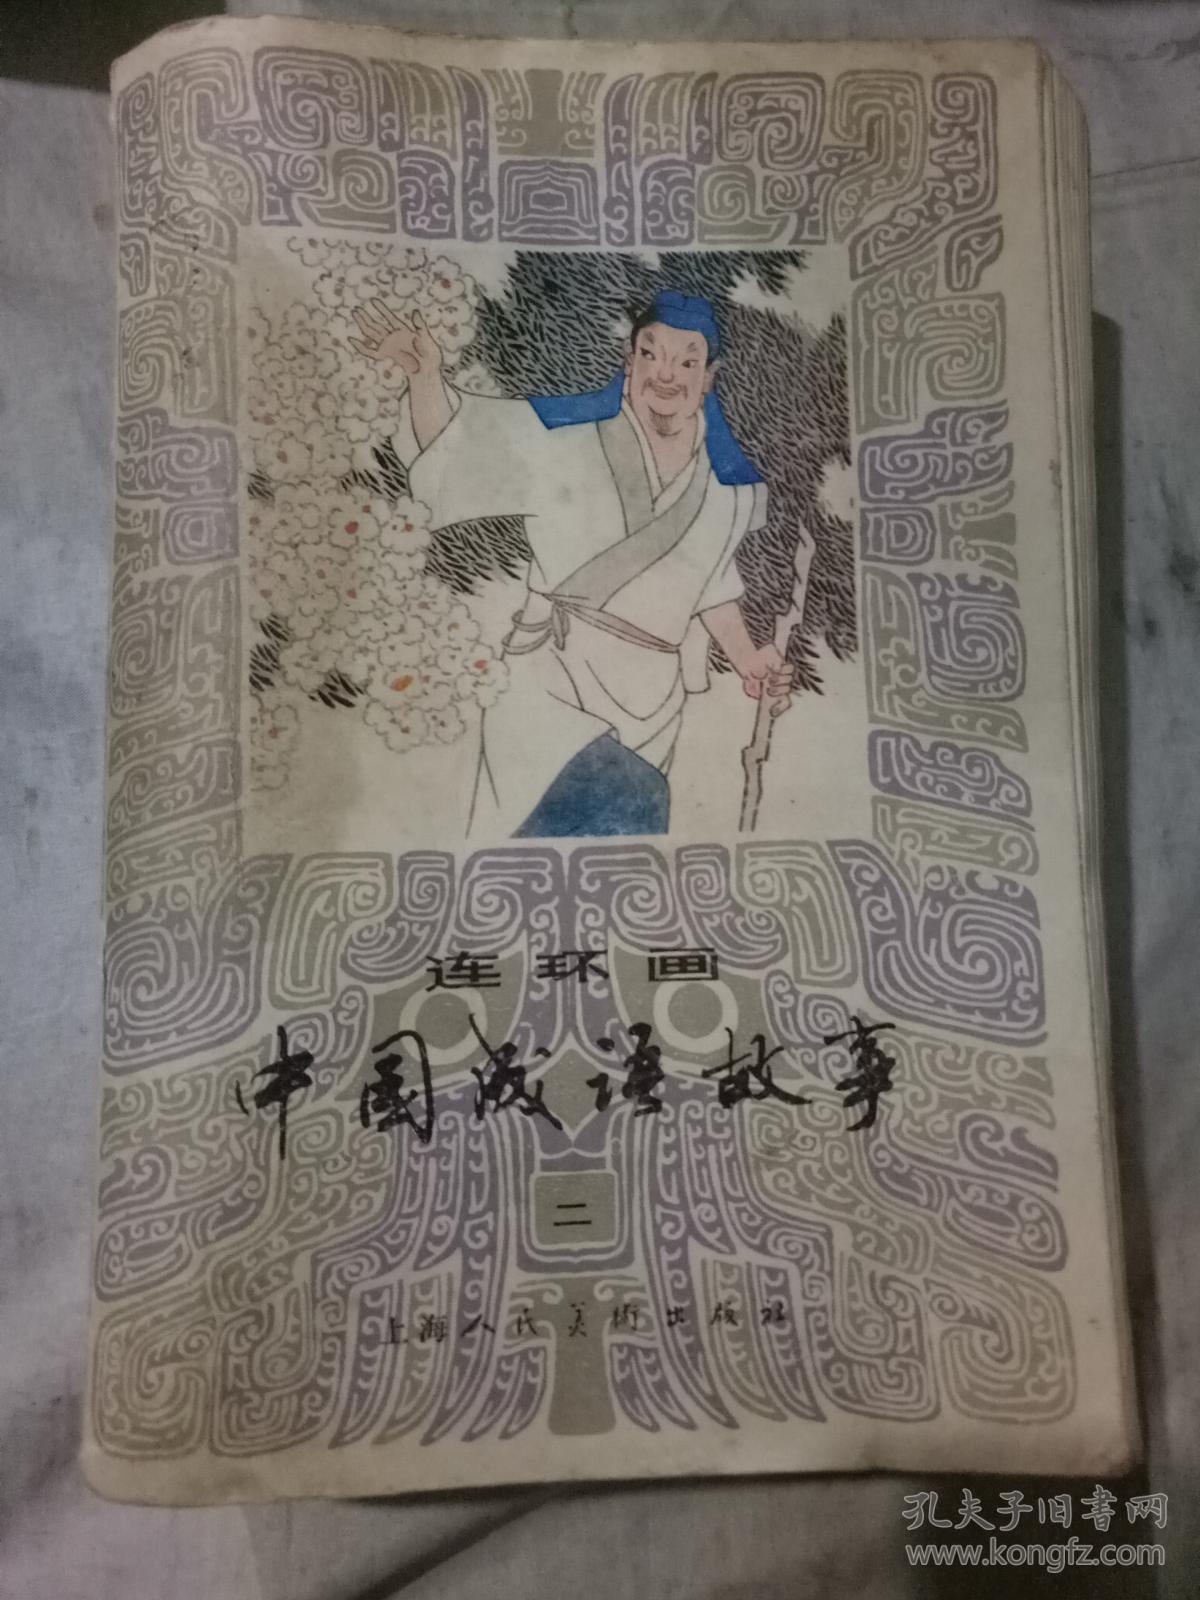 连环画
中国成语故事
二
上海人民美術出版社
孔夫子旧书网
www.kongfz.com